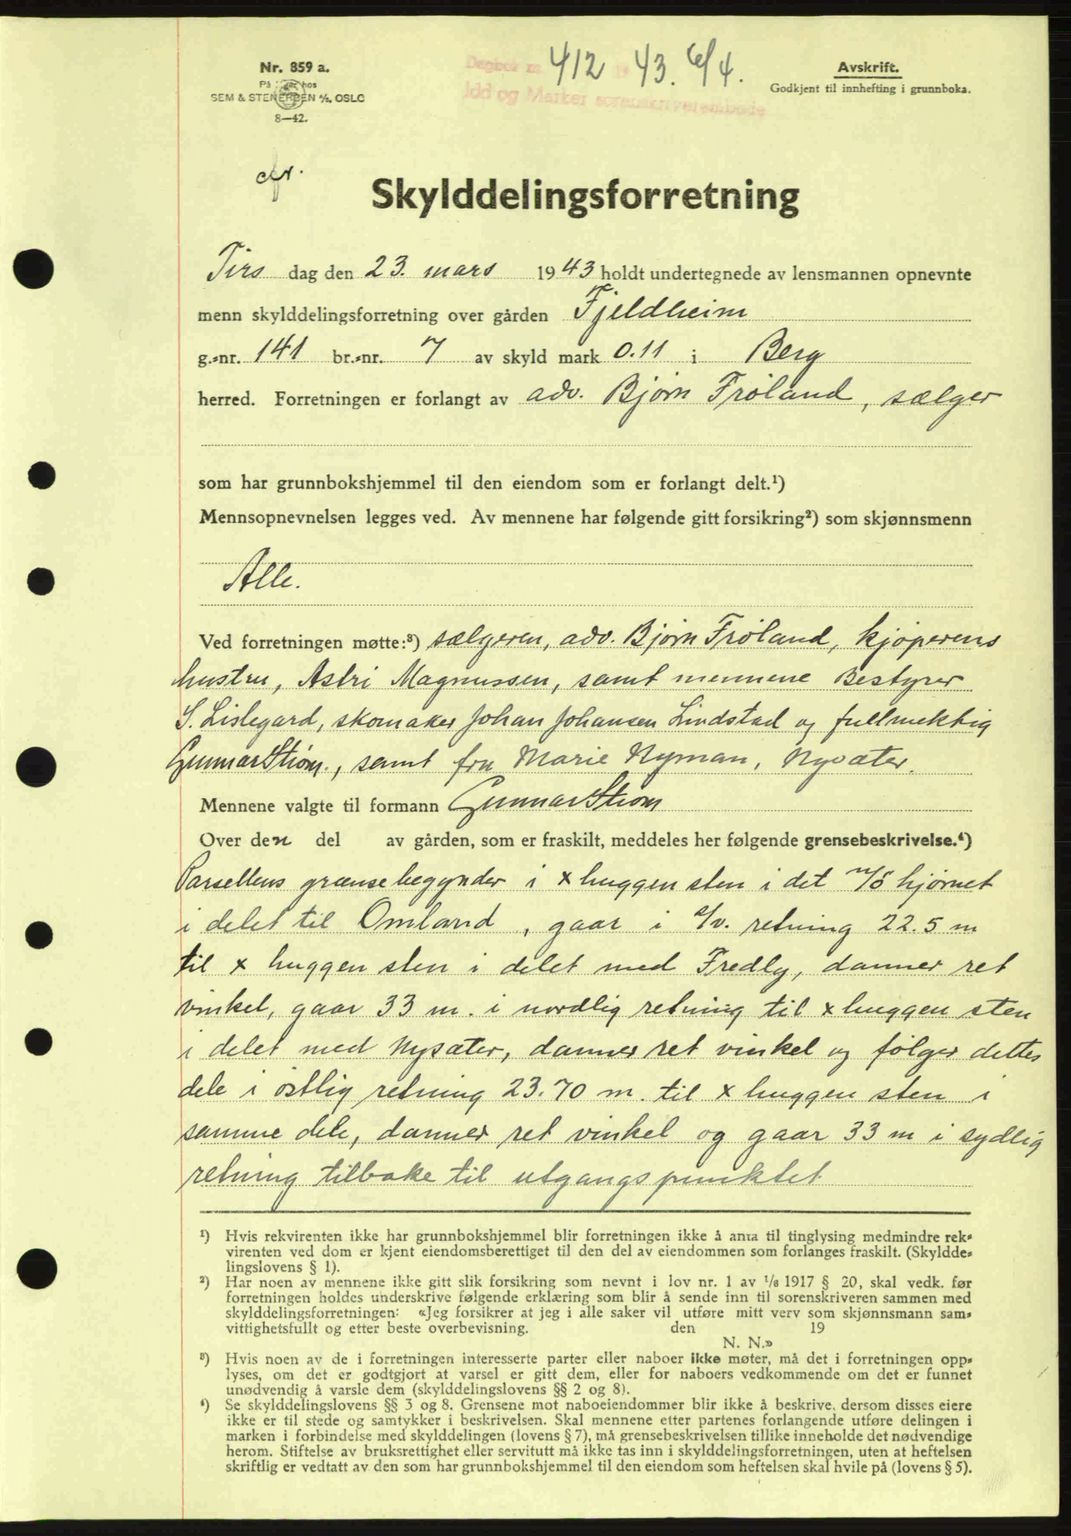 Nr. 859 a.
SEM & STENERSEN A/S, OSLO
8—42.
Dagbok nr. 412 19 43. 6/4.
Idd og Marker sorenskriverembede
Avskrift.
Godkjent til innhefting i grunnboka.
cfr.
Skylddelingsforretning
Tirs dag den 23. mars 1943 holdt undertegnede av lensmannen opnevnte
menn skylddelingsforretning over gården Fjeldheim
g.-nr. 141 br.-nr. 7 av skyld mark 0.11 i Berg
herred. Forretningen er forlangt av adv. Bjørn Frøland, sælger
som har grunnbokshjemmel til den eiendom som er forlangt delt.¹)
Mennsopnevnelsen legges ved. Av mennene har følgende gitt forsikring²) som skjønnsmenn
Alle.
Ved forretningen møtte:³) sælgeren, adv. Bjørn Frøland, kjøperens
hustru, Astri Magnussen, samt mennene Bestyrer
S. Lislegard, skomaker Johan Johansen Lindstad og fullmektig
Gunnar Strøm., samt fru Marie Nyman, Nysæter.
Mennene valgte til formann Gunnar Strøm
Over den del av gården, som er fraskilt, meddeles her følgende grensebeskrivelse.⁴)
Parsellens grænse begynder i x huggen sten i det n/ö hjørnet
i delet til Omland, gaar i s/v. retning 22.5 m
til x huggen sten i delet med Fredly, danner ret
vinkel, gaar 33 m. i nordlig retning til x huggen sten
i delet med Nysæter, danner ret vinkel og følger dettes
dele i østlig retning 23.70 m. til x huggen sten i
samme dele, danner ret vinkel og gaar 33 m i sydlig
retning tilbake til utgangspunktet
¹) Hvis rekvirenten ikke har grunnbokshjemmel blir forretningen ikke å anta til tinglysing medmindre rek-
virenten ved dom er kjent eiendomsberettiget til den del av eiendommen som forlanges fraskilt. (Skyldde-
lingslovens § 1).
²) Har noen av mennene ikke gitt slik forsikring som nevnt i lov nr. 1 av 1/6 1917 § 20, skal vedk. før
forretningen holdes underskrive følgende erklæring som blir å sende inn til sorenskriveren sammen med
skylddelingsforretningen: «Jeg forsikrer at jeg i alle saker vil utføre mitt verv som skjønnsmann sam-
vittighetsfullt og etter beste overbevisning. den 19
N. N.»
³) Hvis noen av de i forretningen interesserte parter eller naboer ikke møter, må det i forretningen opp-
lyses, om det er godtgjort at varsel er gitt dem, eller for naboers vedkommende om det er funnet
unødvendig å varsle dem (skylddelingslovens §§ 2 og 8).
⁴) Se skylddelingslovens §§ 3 og 8. Grensene mot naboeiendommer blir ikke å beskrive, dersom disses eiere
ikke er til stede og samtykker i beskrivelsen. Skal mennene etter partenes forlangende utføre delingen i
marken i forbindelse med skylddelingen (lovens § 7), må grensebeskrivelsen tillike inneholde det nødvendige
herom. Stiftelse av bruksrettighet eller servitutt må ikke tas inn i skylddelingsforretningen, uten at heftelsen
skriftlig er vedtatt av den som har grunnbokshjemmel til den eiendom som heftelsen skal hvile på (lovens § 5).